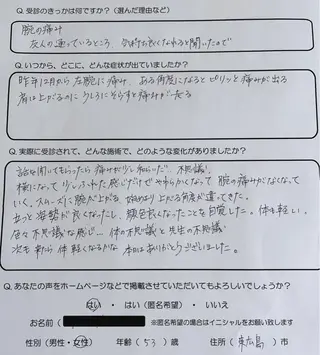 Q. 受診のきっかけは何ですか?(選んだ理由など)
腕の痛み
友人の通っているところ、気持ち良くなれると聞いたので
Q. いつから、どこに、どんな症状が出ていましたか?
昨年12月から左腕に痛み、ある角度になるとピリッと痛みが出る
肩は上がるのに うしろにそらすと痛みが走る
Q. 実際に受診されて、どんな施術で、どのような変化がありましたか?
話を聞いてもらったら痛みが少し和らいだ。不思議!
横になって少しふれた感じだけでやわらかくなって 腕の痛みがなくなって
いく、スムーズに腕が上がる、始めより上がる角度が違ってきた。
立つと姿勢が良くなったし、顔色良くなったことを自覚した。体も軽い。
色々不思議な感じ… 体の不思議と先生の不思議
次も来たら 体軽くなるかな 本日はありがとうございました。
Q. あなたの声をホームページなどで掲載させていただいてもよろしいでしょうか?
はい ・ はい(匿名希望) ・ いいえ
お名前( )※匿名希望の場合はイニシャルをお願い致します
性別(男性・女性) 年齢(53)歳 住所(東広島)市